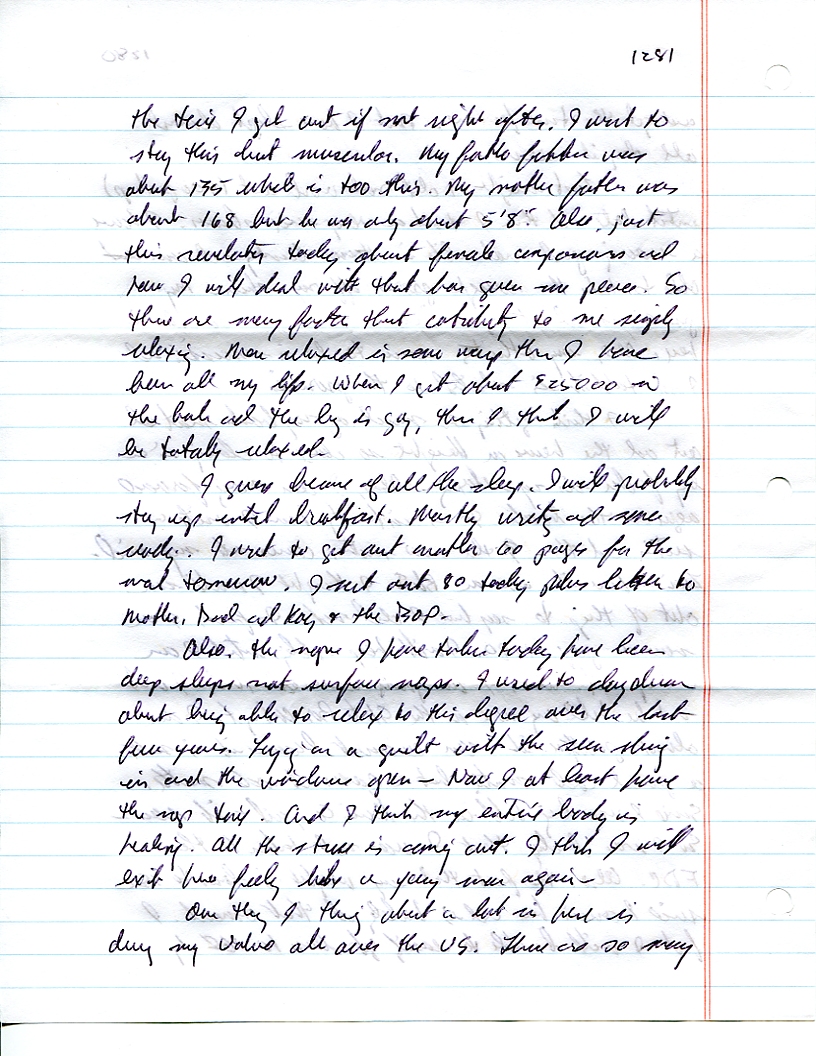 1281
the time I get out if not right after. I want to
stay thin but muscular. My father father was
about 135 which is too thin. My mother father was
about 168 but he was only about 5'8". Also, just
this revelation today about female companions and
how I will deal with that has given me peace. So
there are many factor that contribute to me simply
relaxing. More relaxed in some ways than I have
been all my life. When I get about $25000 in
the bank and the leg is gay, then I think I will
be totally relaxed.
I guess because of all the sleep. I will probably
stay up until breakfast. Mostly writing and some
reading. I want to get out another 60 pages for the
mail tomorrow. I sent out 80 today plus letters to
Mother, Dad and Kay & the BOP.
Also, the naps I have taken today have been
deep sleeps not surface naps. I used to daydream
about being able to relax to this degree over the last
few years. Laying on a quilt with the sun shining
in and the windows open – Now I at least have
the nap time. And I think my entire body is
healing. All the stress is coming out. I think I will
exit here feeling like a young man again –
One thing I think about a lot in here is
driving my Volvo all over the US. There are so many